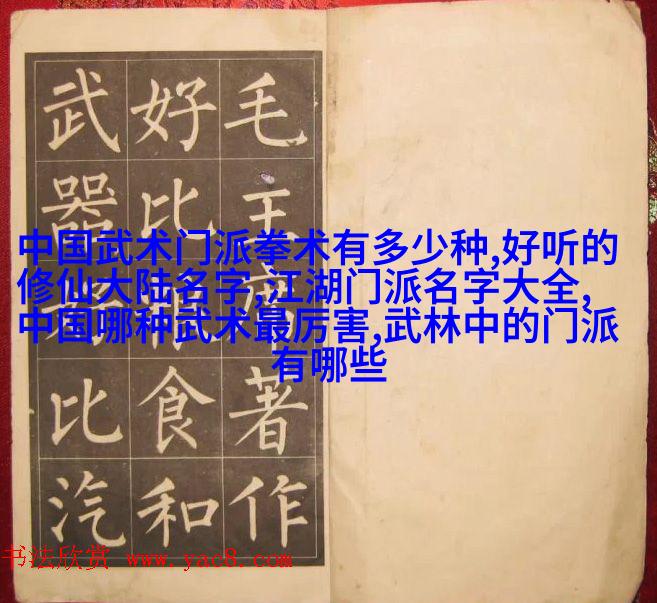 毛主席著作
好比粮食和
武器好比汽
中国武术门派拳术有多少种,好听的
修仙大陆名字,江湖门派名字大全,
中国哪种武术最厉害,武林中的门派
有哪些
书法欣赏 www.yac8.com